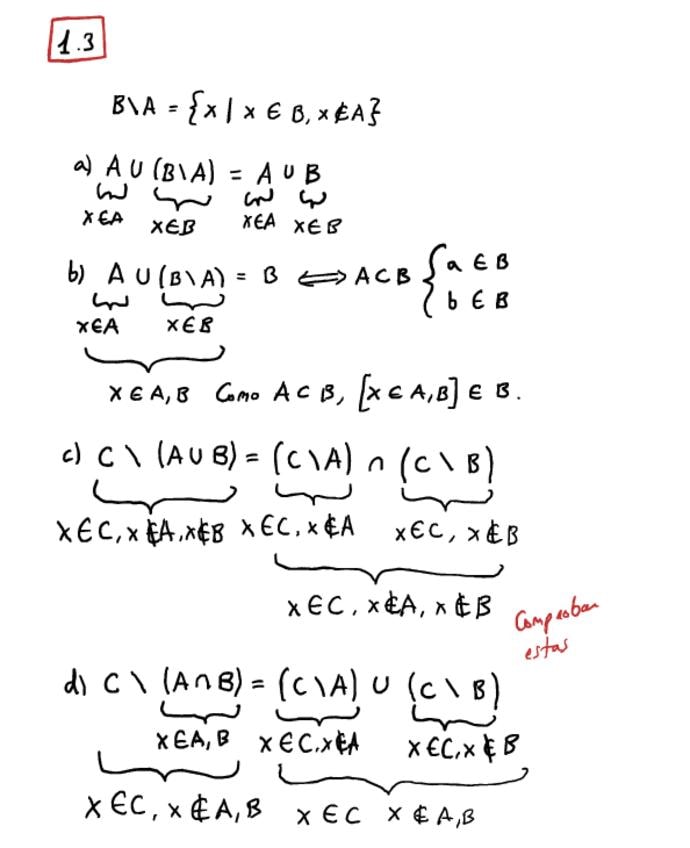 1.3
B\A = {x | x ∈ B, x ∉ A}
a) A ∪ (B\A) = A ∪ B
x ∈ A x ∈ B x ∈ A x ∈ B
b) A ∪ (B\A) = B ⟺ A ⊂ B { a ∈ B
b ∈ B
x ∈ A x ∈ B
x ∈ A, B Como A ⊂ B, [x ∈ A, B] ∈ B.
c) C \ (A ∪ B) = (C\A) ∩ (C \ B)
x ∈ C, x ∉ A, x ∉ B x ∈ C, x ∉ A x ∈ C, x ∉ B
x ∈ C, x ∉ A, x ∉ B
Comprobar
estas
d) C \ (A ∩ B) = (C\A) ∪ (C \ B)
x ∈ A, B x ∈ C, x ∉ A x ∈ C, x ∉ B
x ∈ C, x ∉ A, B x ∈ C x ∉ A, B